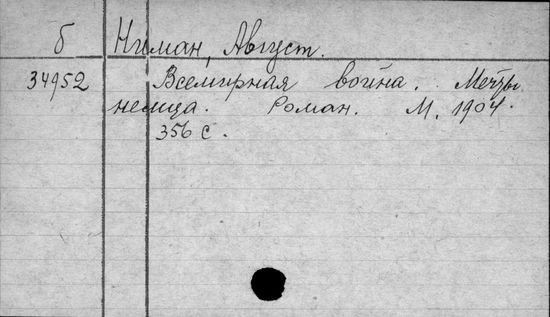 б Ниман, Август.
34952 Всемирная война. Мечты
немца. Роман. М. 1904.
356 с.